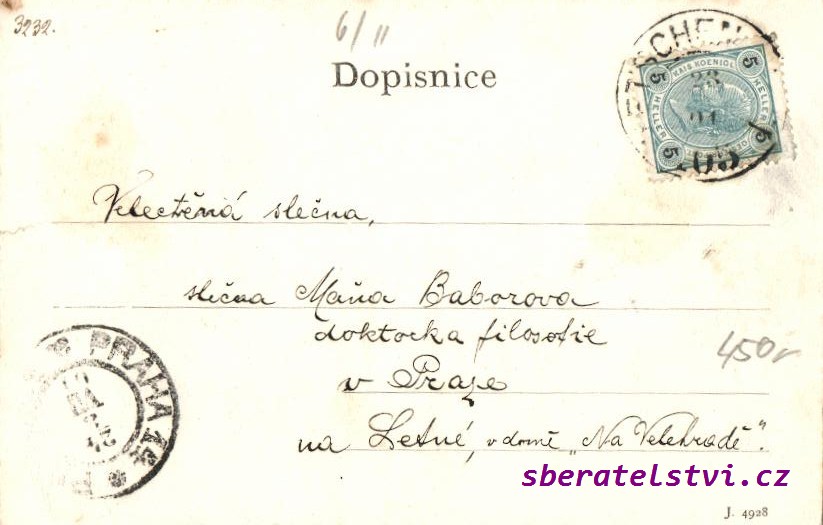 3232.
6/II
Dopisnice
TETSCHEN
KAIS. KOENIGL.
5 5
HELLER HELLER
5 5
23
05
Velectěná slečna,
slečna Máňa Baborova
doktorka filosofie
v Praze
na Letné, v domě „Na Velehradě".
450,-
PRAHA
sberatelstvi.cz
J. 4928